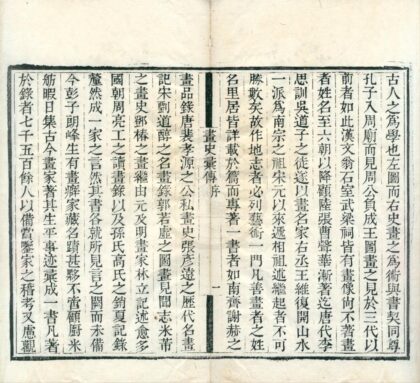 古人之爲學也左圖而右史畫之爲術與書契同尊
孔子入周廟而見周公負成王圖畫之見於三代以
前者如此漢文翁石室武梁祠皆有畫像尚不著畫
者姓名至六朝以降顧陸張曹聲華漸著迄唐代李
思訓吳道子之徒遂以畫名家右丞王維復開山水
一派爲南宗之祖宋元以來遞相祖述繼起者不可
勝數矣故作地志者必列藝術一門凡善畫者之姓
名里居皆詳載於篇而專著一書者如南齊謝赫之
畫史彙傳 序 一
畫品錄唐裴孝源之公私畫史張彥遠之歷代名畫
記宋劉道醇之名畫錄郭若虛之圖畫見聞志米芾
之畫史鄧椿之畫繼由元及明畫家林立記述愈多
國朝周亮工之讀畫錄以及孫氏高氏之銷夏記錄
釐然成一家之言然其書各就所見言之闕而未備
今彭子朗峰生有畫癖家藏名蹟甚夥不啻顧厨米
舫暇日集古今畫家著其生平事迹彙成一書凡著
於錄者七千五百餘人以備賞鑒家之稽考又慮觀